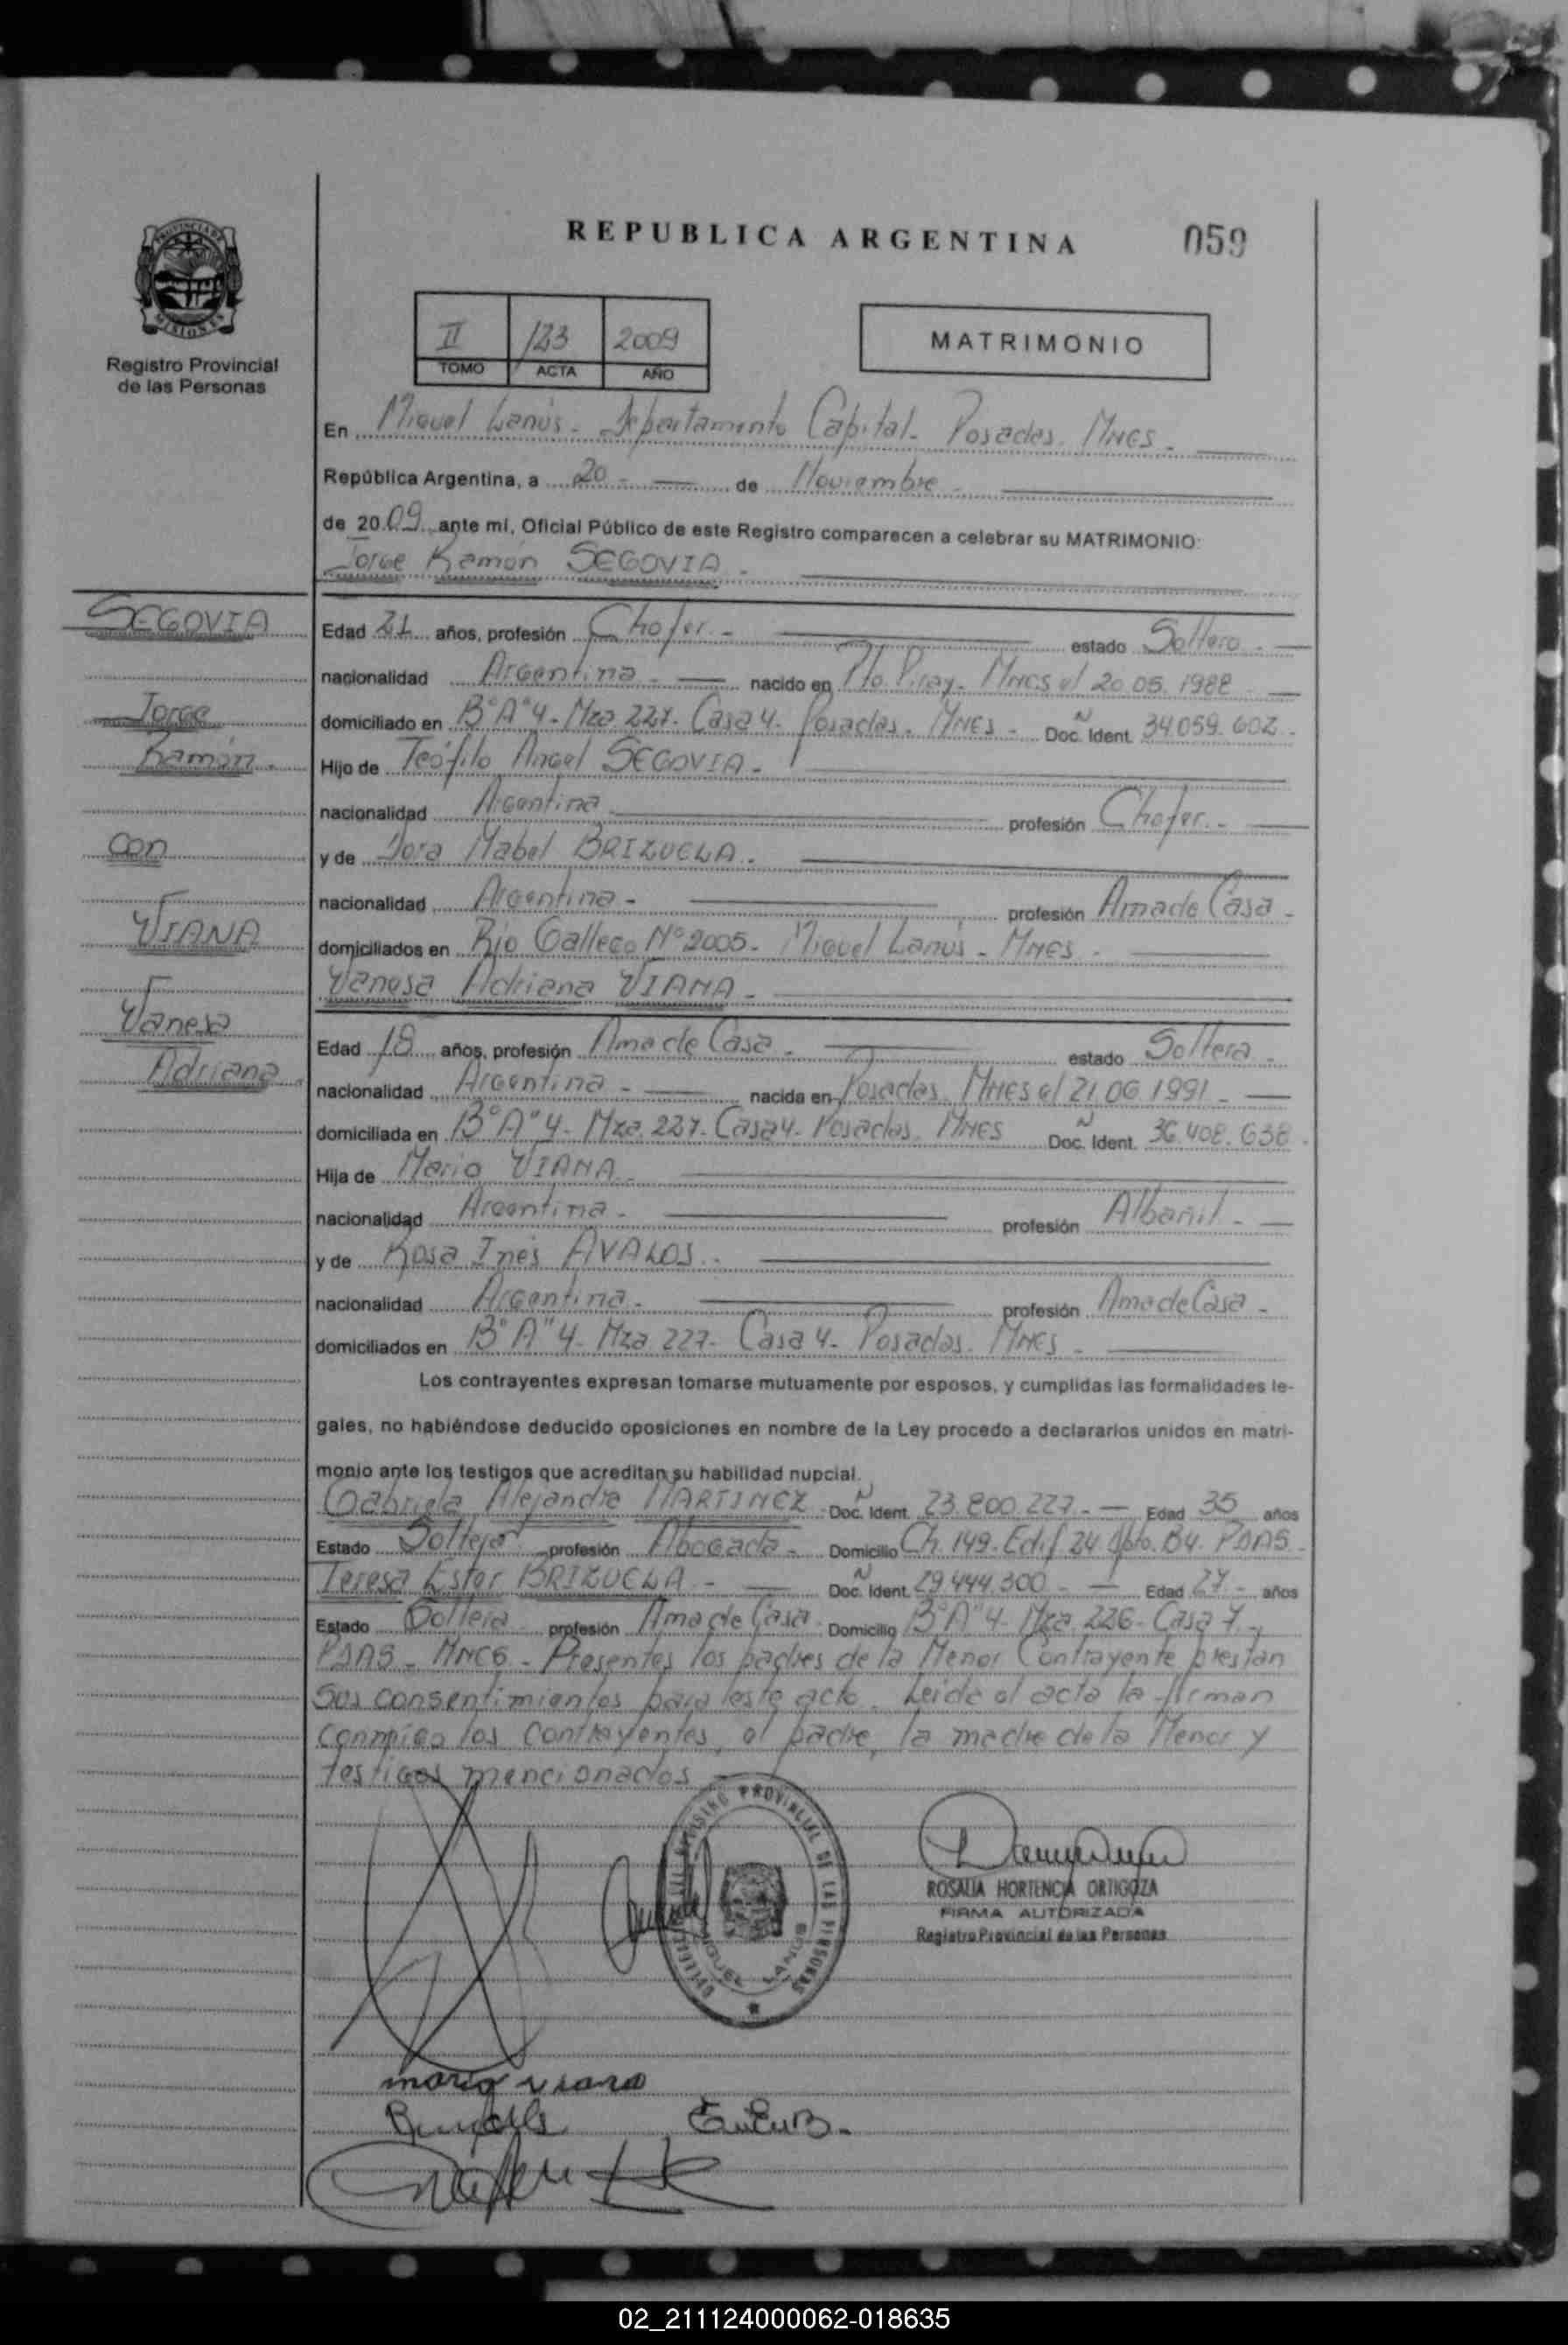 REPUBLICA ARGENTINA
059
PROVINCIA DE MISIONES
Registro Provincial
de las Personas
II 123 2009
TOMO ACTA AÑO
MATRIMONIO
En Miguel Lanús - Departamento Capital - Posadas. Mnes -
República Argentina, a 20 - de Noviembre -
de 2009 ante mí, Oficial Público de este Registro comparecen a celebrar su MATRIMONIO:
Jorge Ramón SEGOVIA -
SEGOVIA
Jorge
Ramón -
con
VIANA
Vanesa
Adriana
Edad 21 años, profesión Chofer - estado Soltero -
nacionalidad Argentina - nacido en Pto. Piray - Mnes el 20.05.1988
domiciliado en B° A"4 - Mza 227 - Casa 4 - Posadas. Mnes - Doc. Ident. N 34.059.602 -
Hijo de Teófilo Angel SEGOVIA -
nacionalidad Argentina profesión Chofer -
y de Mabel BRIZUELA -
nacionalidad Argentina - profesión Ama de Casa -
domiciliados en Río Gallego N° 2005 - Miguel Lanús - Mnes -
Vanesa Adriana VIANA -
Edad 18 años, profesión Ama de Casa - estado Soltera -
nacionalidad Argentina - nacida en Posadas. Mnes el 21.06.1991 -
domiciliada en B° A"4 - Mza. 227 - Casa 4 - Posadas. Mnes Doc. Ident. N 36.408.638 -
Hija de Mario VIANA -
nacionalidad Argentina - profesión Albañil -
y de Rosa Inés AVALOS -
nacionalidad Argentina - profesión Ama de Casa -
domiciliados en B° A"4 - Mza 227 - Casa 4 - Posadas. Mnes -
Los contrayentes expresan tomarse mutuamente por esposos, y cumplidas las formalidades le-
gales, no habiéndose deducido oposiciones en nombre de la Ley procedo a declararlos unidos en matri-
monio ante los testigos que acreditan su habilidad nupcial.
Gabriela Alejandra MARTINEZ - Doc. Ident. N 23.800.227 - Edad 35 años
Estado Soltera profesión Abogada - Domicilio Ch. 149 - Edif 24 Dpto. B4. PDAS -
Teresa Ester BRIZUELA - Doc. Ident. N 29.444.300 - Edad 27 - años
Estado Soltera profesión Ama de Casa - Domicilio B° A"4 - Mza. 226 - Casa 7 -
PDAS - MNES - Presentes los padres de la Menor Contrayente prestan
sus consentimientos para este acto. Leida el acta la firman
conmigo los contrayentes, el padre, la madre de la Menor y
testigos mencionados
REGISTRO PROVINCIAL DE LAS PERSONAS
MIGUEL LANUS
ROSALIA HORTENCIA ORTIGOZA
FIRMA AUTORIZADA
Registro Provincial de las Personas
mario viana
02_211124000062-018635